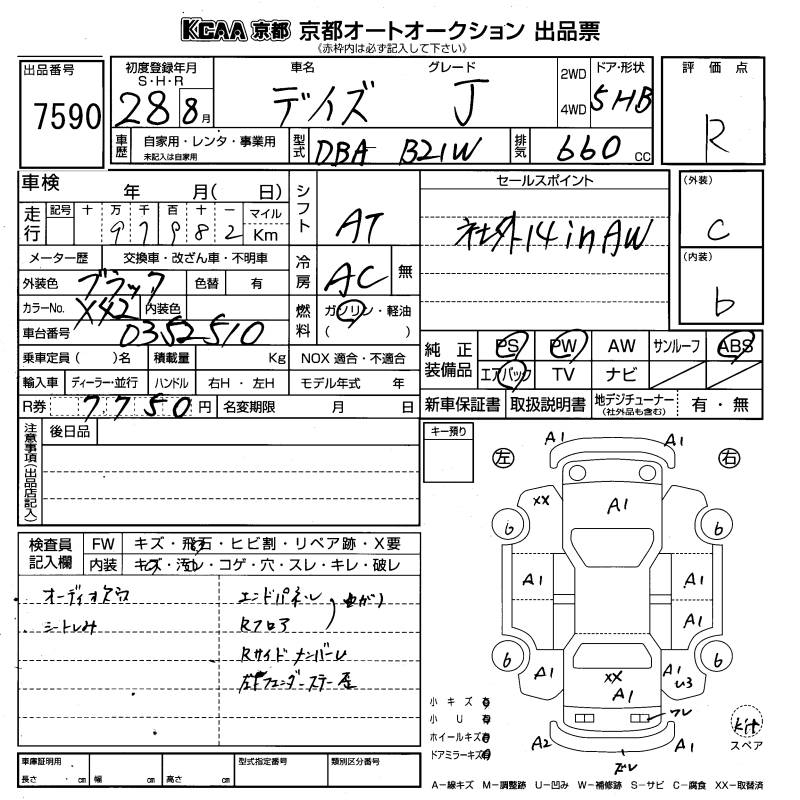 KCAA 京都 京都オートオークション 出品票
《赤枠内は必ず記入して下さい》
出品番号 7590
初度登録年月 S・H・R 28 8月
車名 デイズ
グレード J
2WD 4WD
ドア・形状 5HB
評価点 R
車歴 自家用・レンタ・事業用 未記入は自家用
型式 DBA B21W
排気 660 cc
車検 年 月( 日)
シフト AT
セールスポイント
社外14inAW
(外装) C
(内装) b
走行 記号 十 万 千 百 十 一 マイル Km
9 7 9 8 2
メーター歴 交換車・改ざん車・不明車
冷房 AC 無
外装色 ブラック 色替 有
カラーNo. X42 内装色
燃料 ガソリン・軽油 ( )
車台番号 0352510
乗車定員( )名 積載量 Kg NOX 適合・不適合
輸入車 ディーラー・並行 ハンドル 右H・左H モデル年式 年
R券 7750円 名変期限 月 日
純正装備品 PS PW AW サンルーフ ABS
エアバック TV ナビ
新車保証書 取扱説明書 地デジチューナー (社外品も含む) 有・無
注意事項(出品店記入) 後日品
キー預り
左 右
検査員記入欄 FW キズ・飛石・ヒビ割・リペア跡・X要
内装 キズ・汚レ・コゲ・穴・スレ・キレ・破レ
オーディオヌケ エンドパネル 曲がり
シートしみ Rフロア
Rサイドメンバーい
A1 A1
XX A1
b b
A1 A1
A1
b b
A1 XX A1
A1
A2 A1
小キズ 有
小U 有
ホイールキズ 有
ドアミラーキズ 有
kit
スペア
車庫証明用 長さ cm 幅 cm 高さ cm 型式指定番号 類別区分番号
A−線キズ M−調整跡 U−凹み W−補修跡 S−サビ C−腐食 XX−取替済